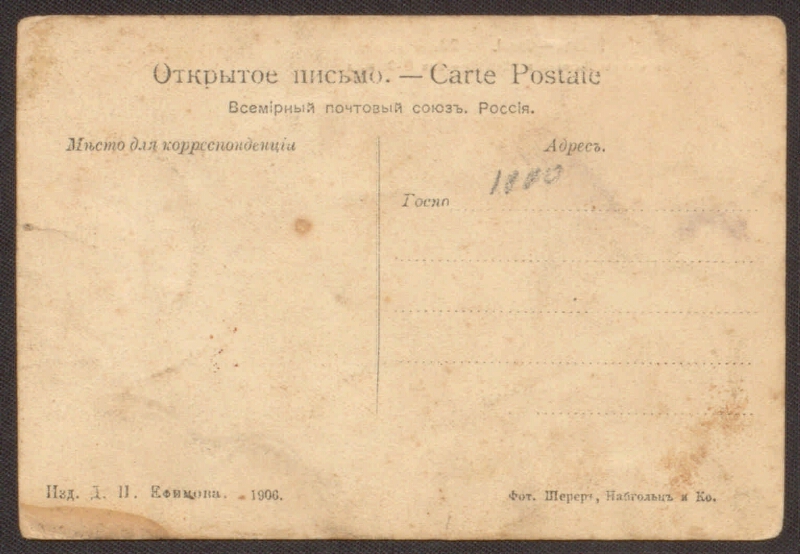 Открытое письмо. — Carte Postale
Всемірный почтовый союзъ. Россія.
Мѣсто для корреспонденціи
Адресъ.
Госпо
Изд. Д. П. Ефимова. 1906.
Фот. Шереръ, Набгольцъ и Ко.